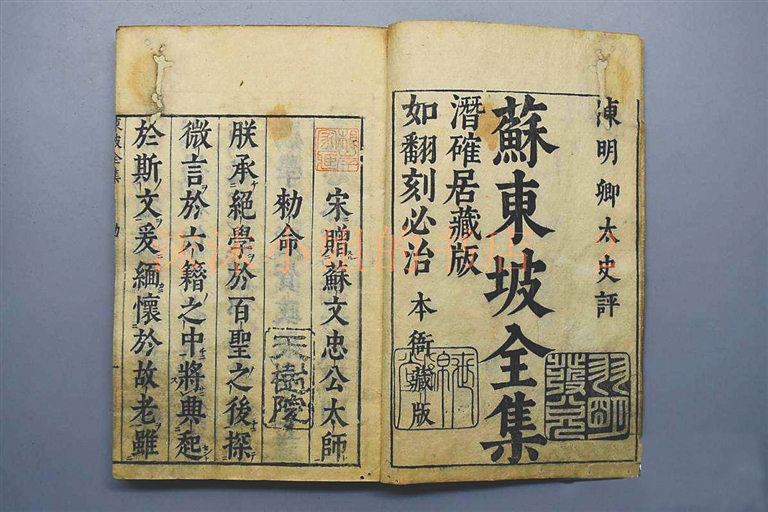 陳明卿太史評
蘇東坡全集
潛確居藏版
如翻刻必治
本衙藏版
宋贈蘇文忠公太師
勑命
天樹陵
朕承絕學於百聖之後探
微言於六籍之中將興起
於斯文爰緬懷於故老雖
東坡全集